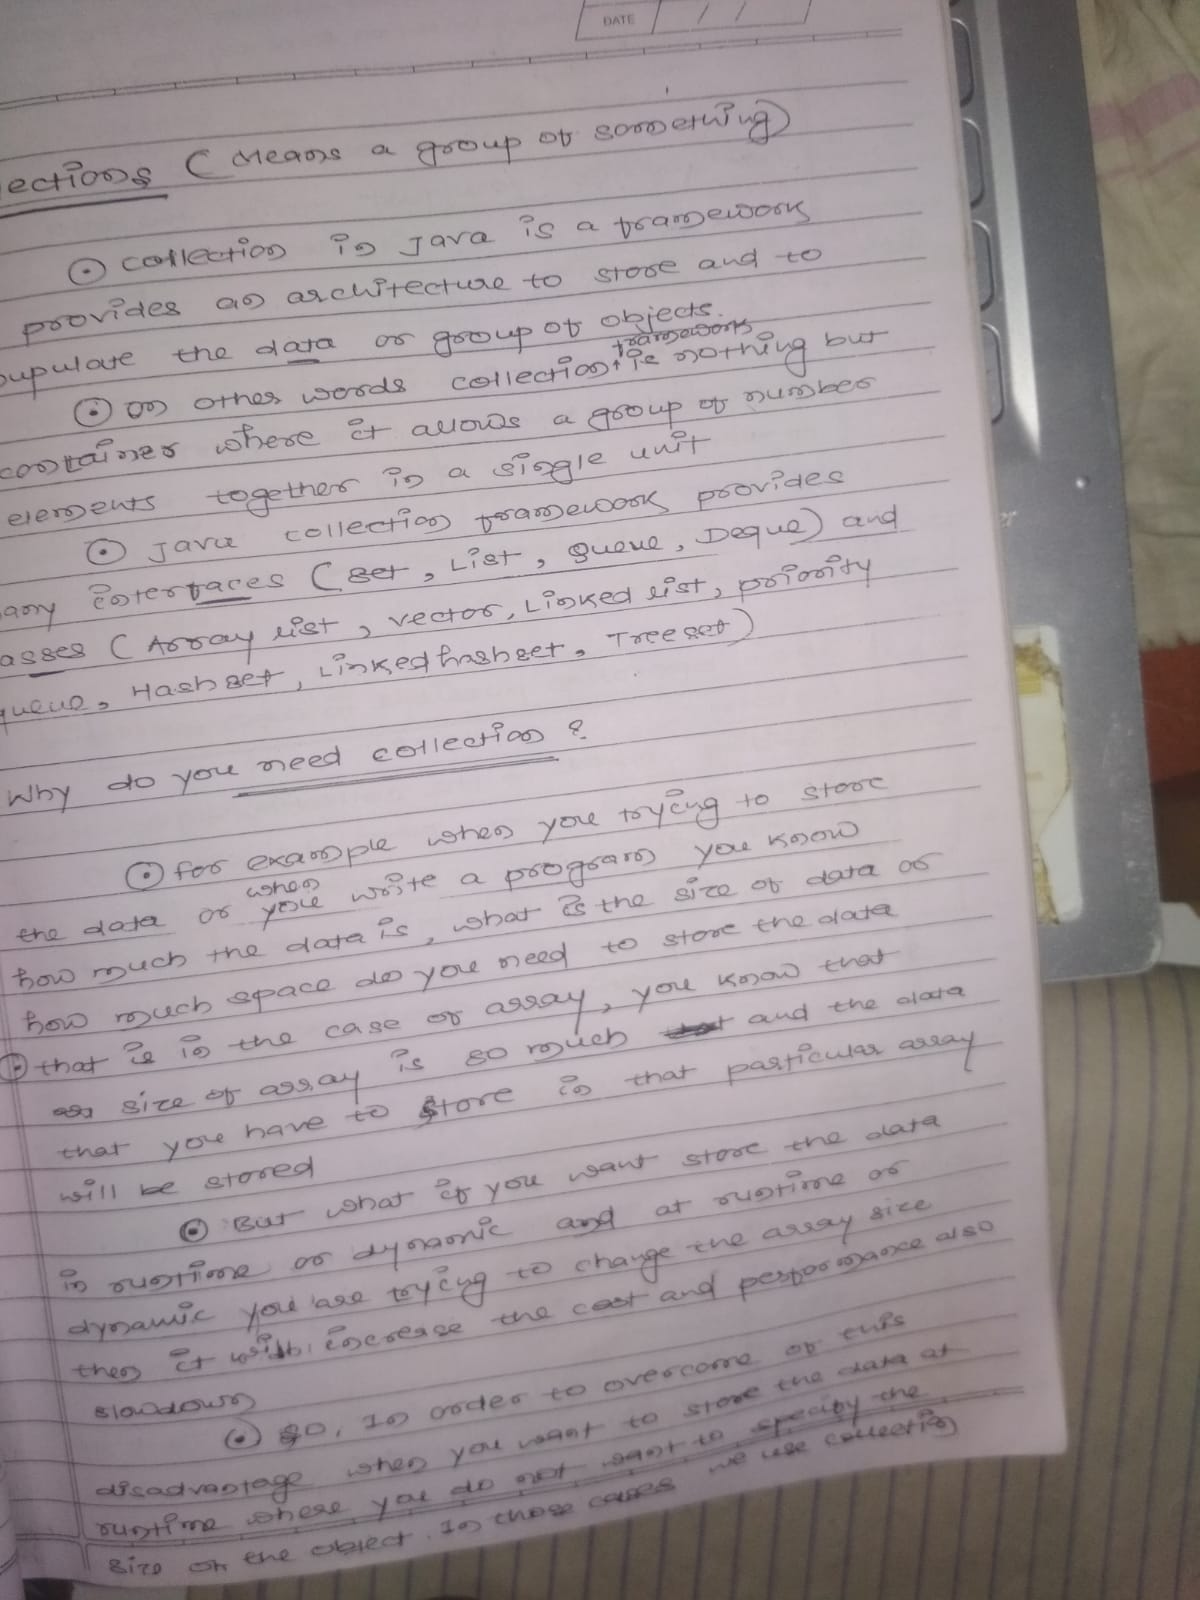 DATE / /
lections (Means a group of something)
⊙ collection in Java is a framework
provides an architecture to store and to
pupulate the data or group of objects.
framework
⊙ In other words collection is nothing but
container where it allows a group of number
elements together in a single unit
⊙ Java collection framework provides
any interfaces (Set, List, Queue, Deque) and
asses (Array list, vector, Linked list, priority
queue, Hash set, Linked hashset, Tree set)
Why do you need collection?
⊙ for example when you trying to store
when
the data or you write a program you know
how much the data is, what is the size of data or
how much space do you need to store the data
⊙ that is in the case of array, you know that
size of array is so much and the data
that you have to store in that particular array
will be stored
⊙ But what if you want store the data
in runtime or dynamic and at runtime or
dynamic you are trying to change the array size
then it will increase the cost and performance also
slowdown
⊙ so, In order to overcome of this
disadvantage when you want to store the data at
runtime where you do not want to specify the
size of the object. In those cases we use collection